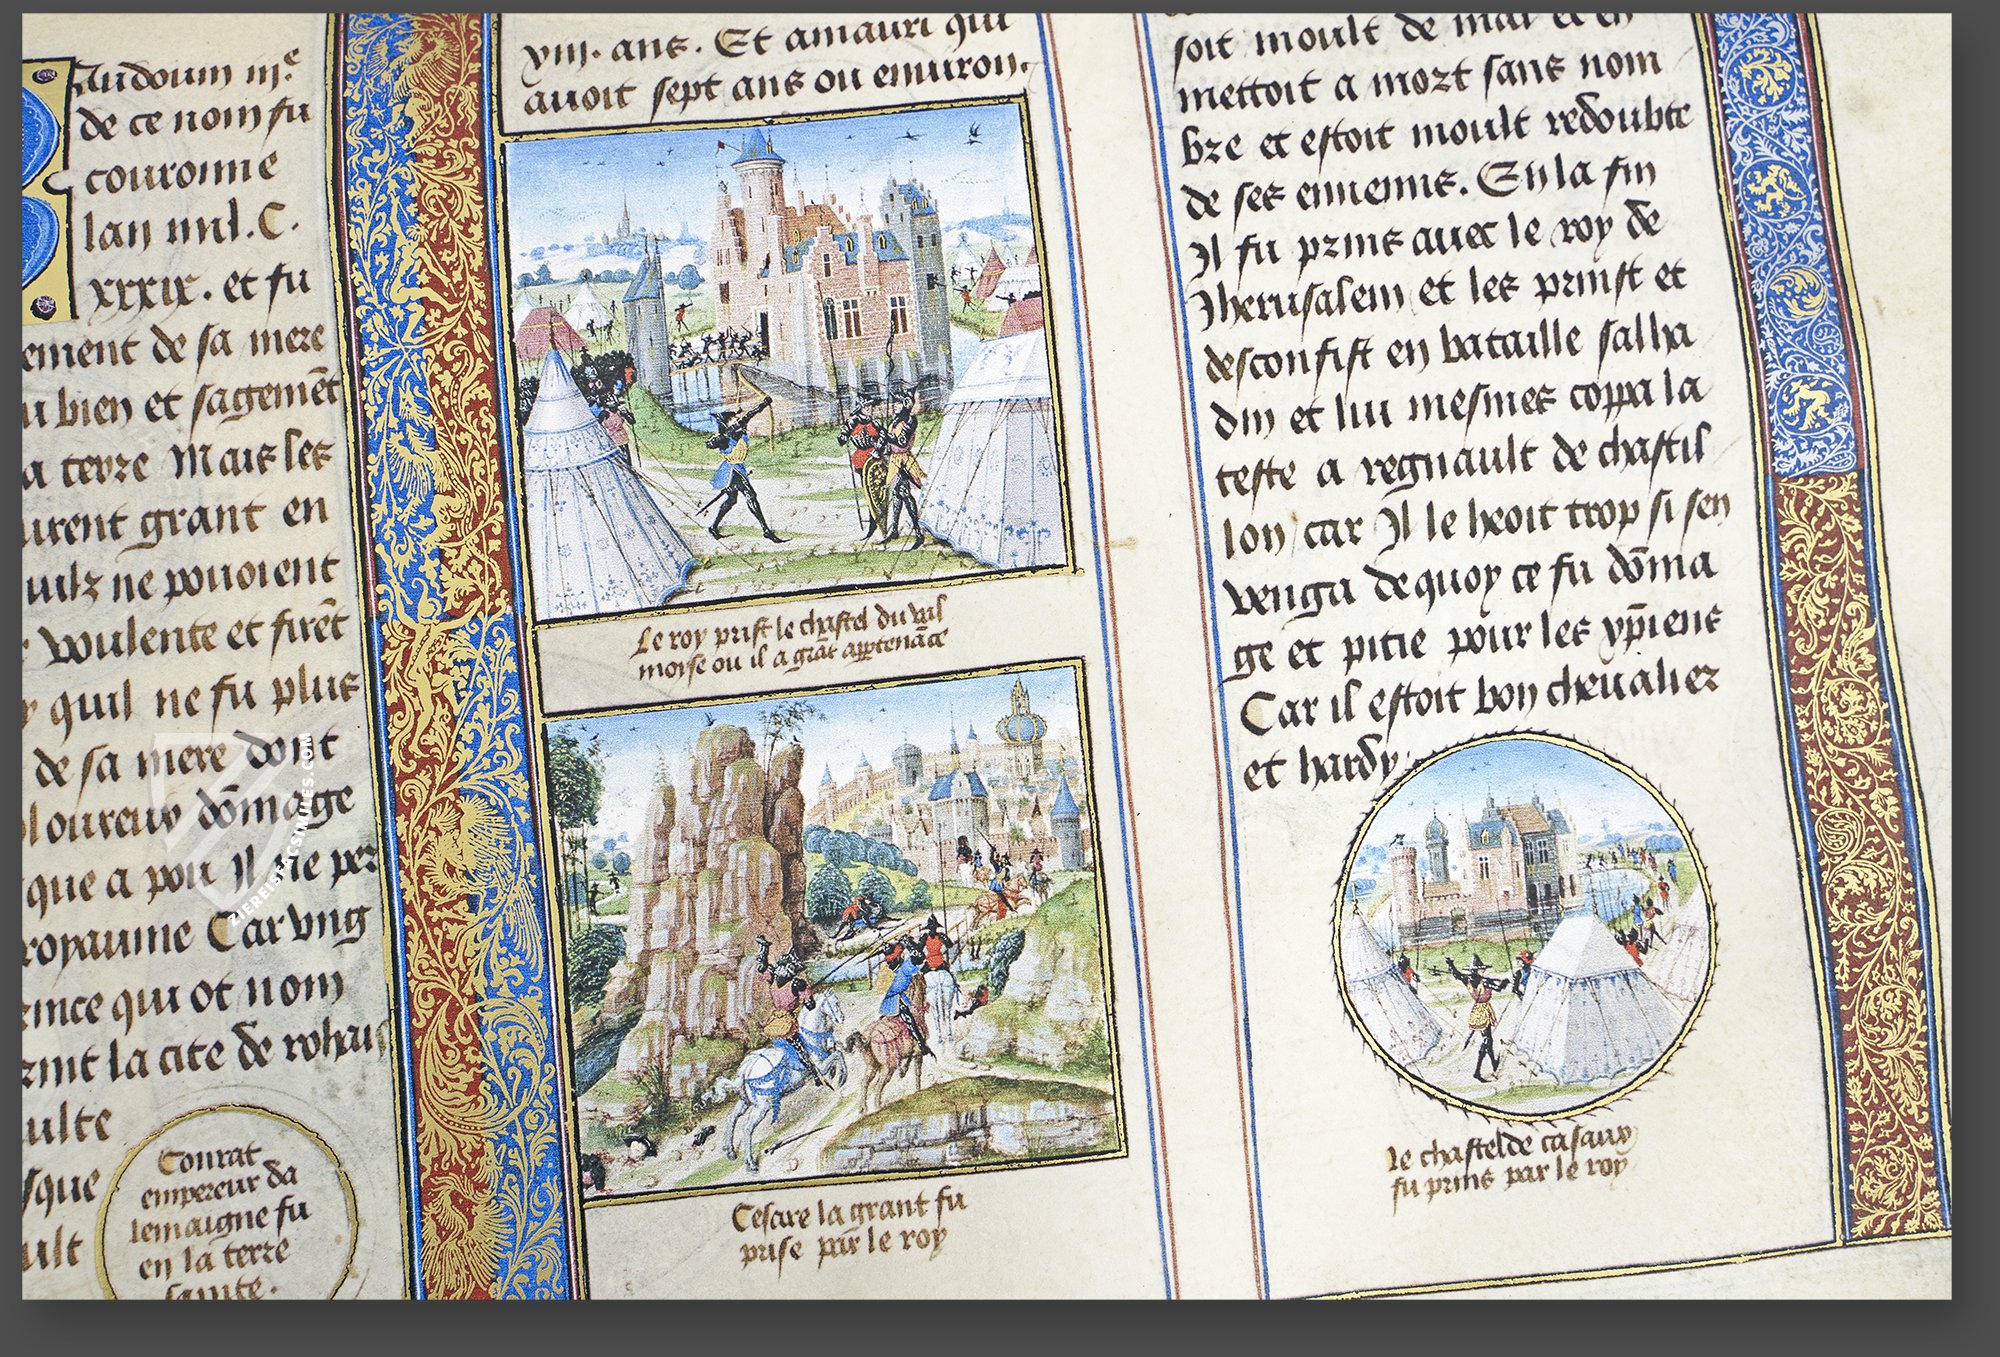 Baudouin iii.e
de ce nom fu
couronne
lan mil.C.
xxxix. et fu
ement de sa mere
u bien et sagemēt
a terre Mais les
urent grant en
uilz ne pouoient
voulente et firēt
y quil ne fu plus
de sa mere dont
loureux dōmage
que a pou Il ne per
royaume Car vng
rince qui ot nom
rint la cite de rohais
ulte
sque
ult
Conrat
empereur da
lemaigne fu
en la terre
sainte.
viii. ans. Et amauri qui
auoit sept ans ou enuiron.
Le roy prist le chastel du val
moise ou il a grāt appartenāce
Cesare la grant fu
prise par le roy
soit moult de mal et en
mettoit a mort sans nom
bre et estoit moult redoubte
de ses ennemis. En la fin
Il fu prins auec le roy de
Jherusalem et les prinst et
desconfist en bataille salha
din et lui mesmes coppa la
teste a regnault de chastil
lon car Il le heoit trop si sen
venga de quoy ce fu dōma
ge et pitie pour les xp̄iens
Car il estoit bon cheualier
et hardy.
le chastel de casaux
fu prins par le roy
ZIEREISFACSIMILES.COM